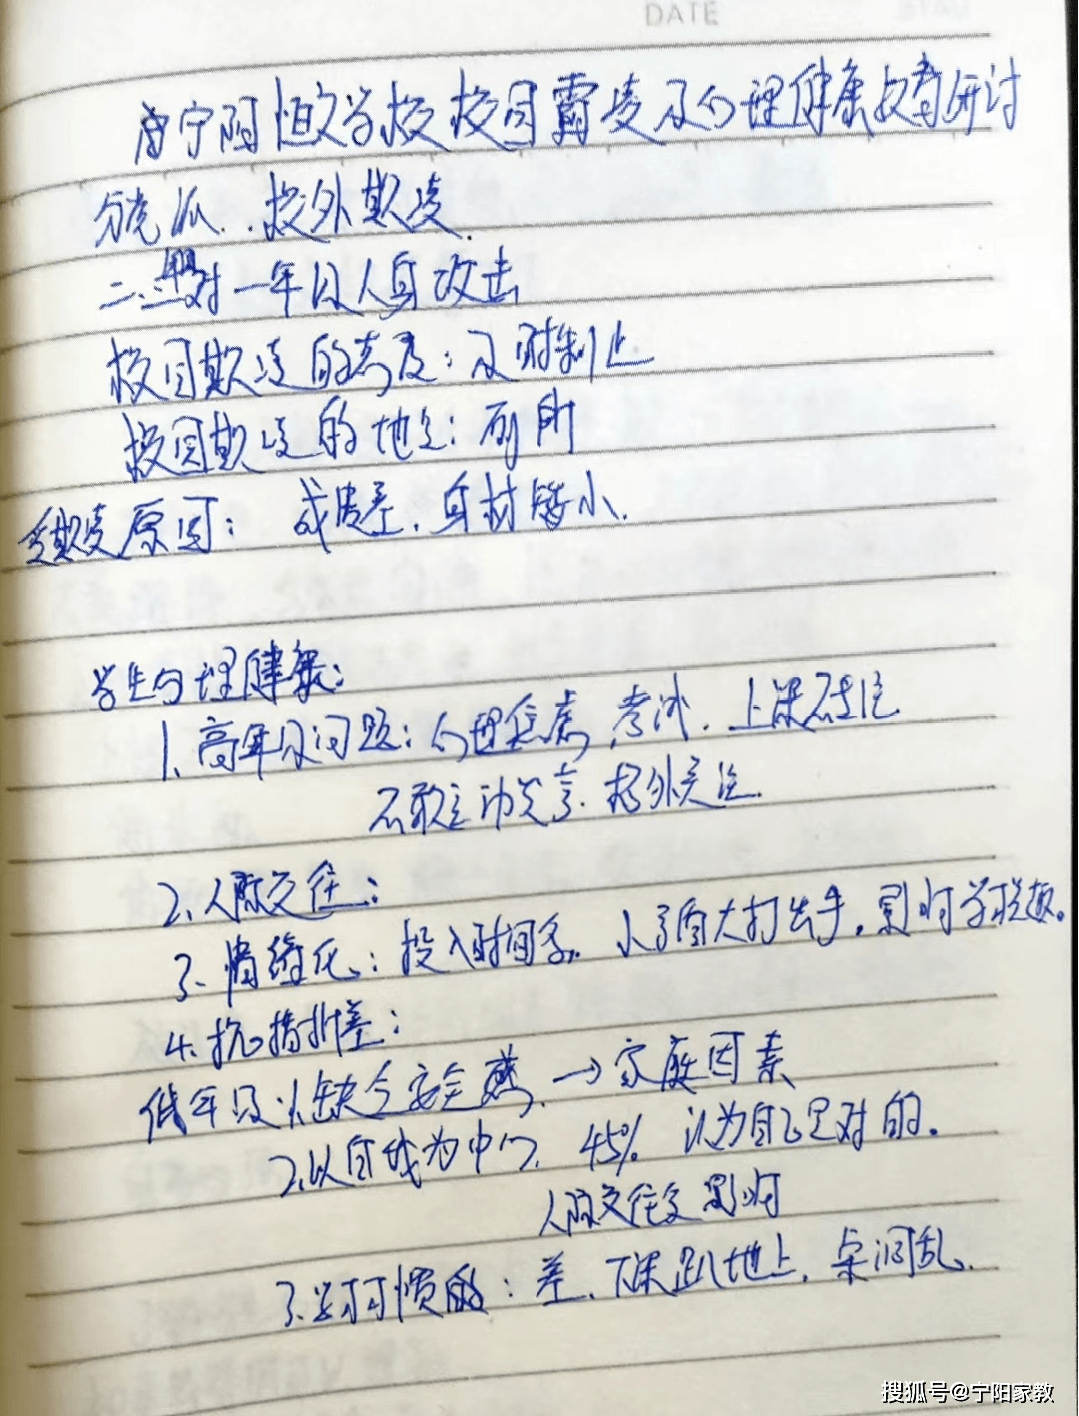 DATE
宁阳恒文学校校园霸凌及心理健康教育研讨
校外欺凌
二、对一年级人身攻击
校园欺凌的态度：及时制止
校园欺凌的地点：厕所
受欺凌原因：成绩差、身材矮小.
学生心理健康：
1、高年级问题：心理焦虑,考试、上课不专注
不敢主动发言、格外关注
2、人际交往：
3、情绪化：投入时间多、小了自大打出手，影响学校
4、抗挫折差：
低年级 1、缺乏安全感、→家庭因素
2、以自我为中心、45% 认为自己是对的。
人际交往受影响
3、学习习惯的：差、下课趴地上，桌洞乱.
搜狐号@宁阳家教